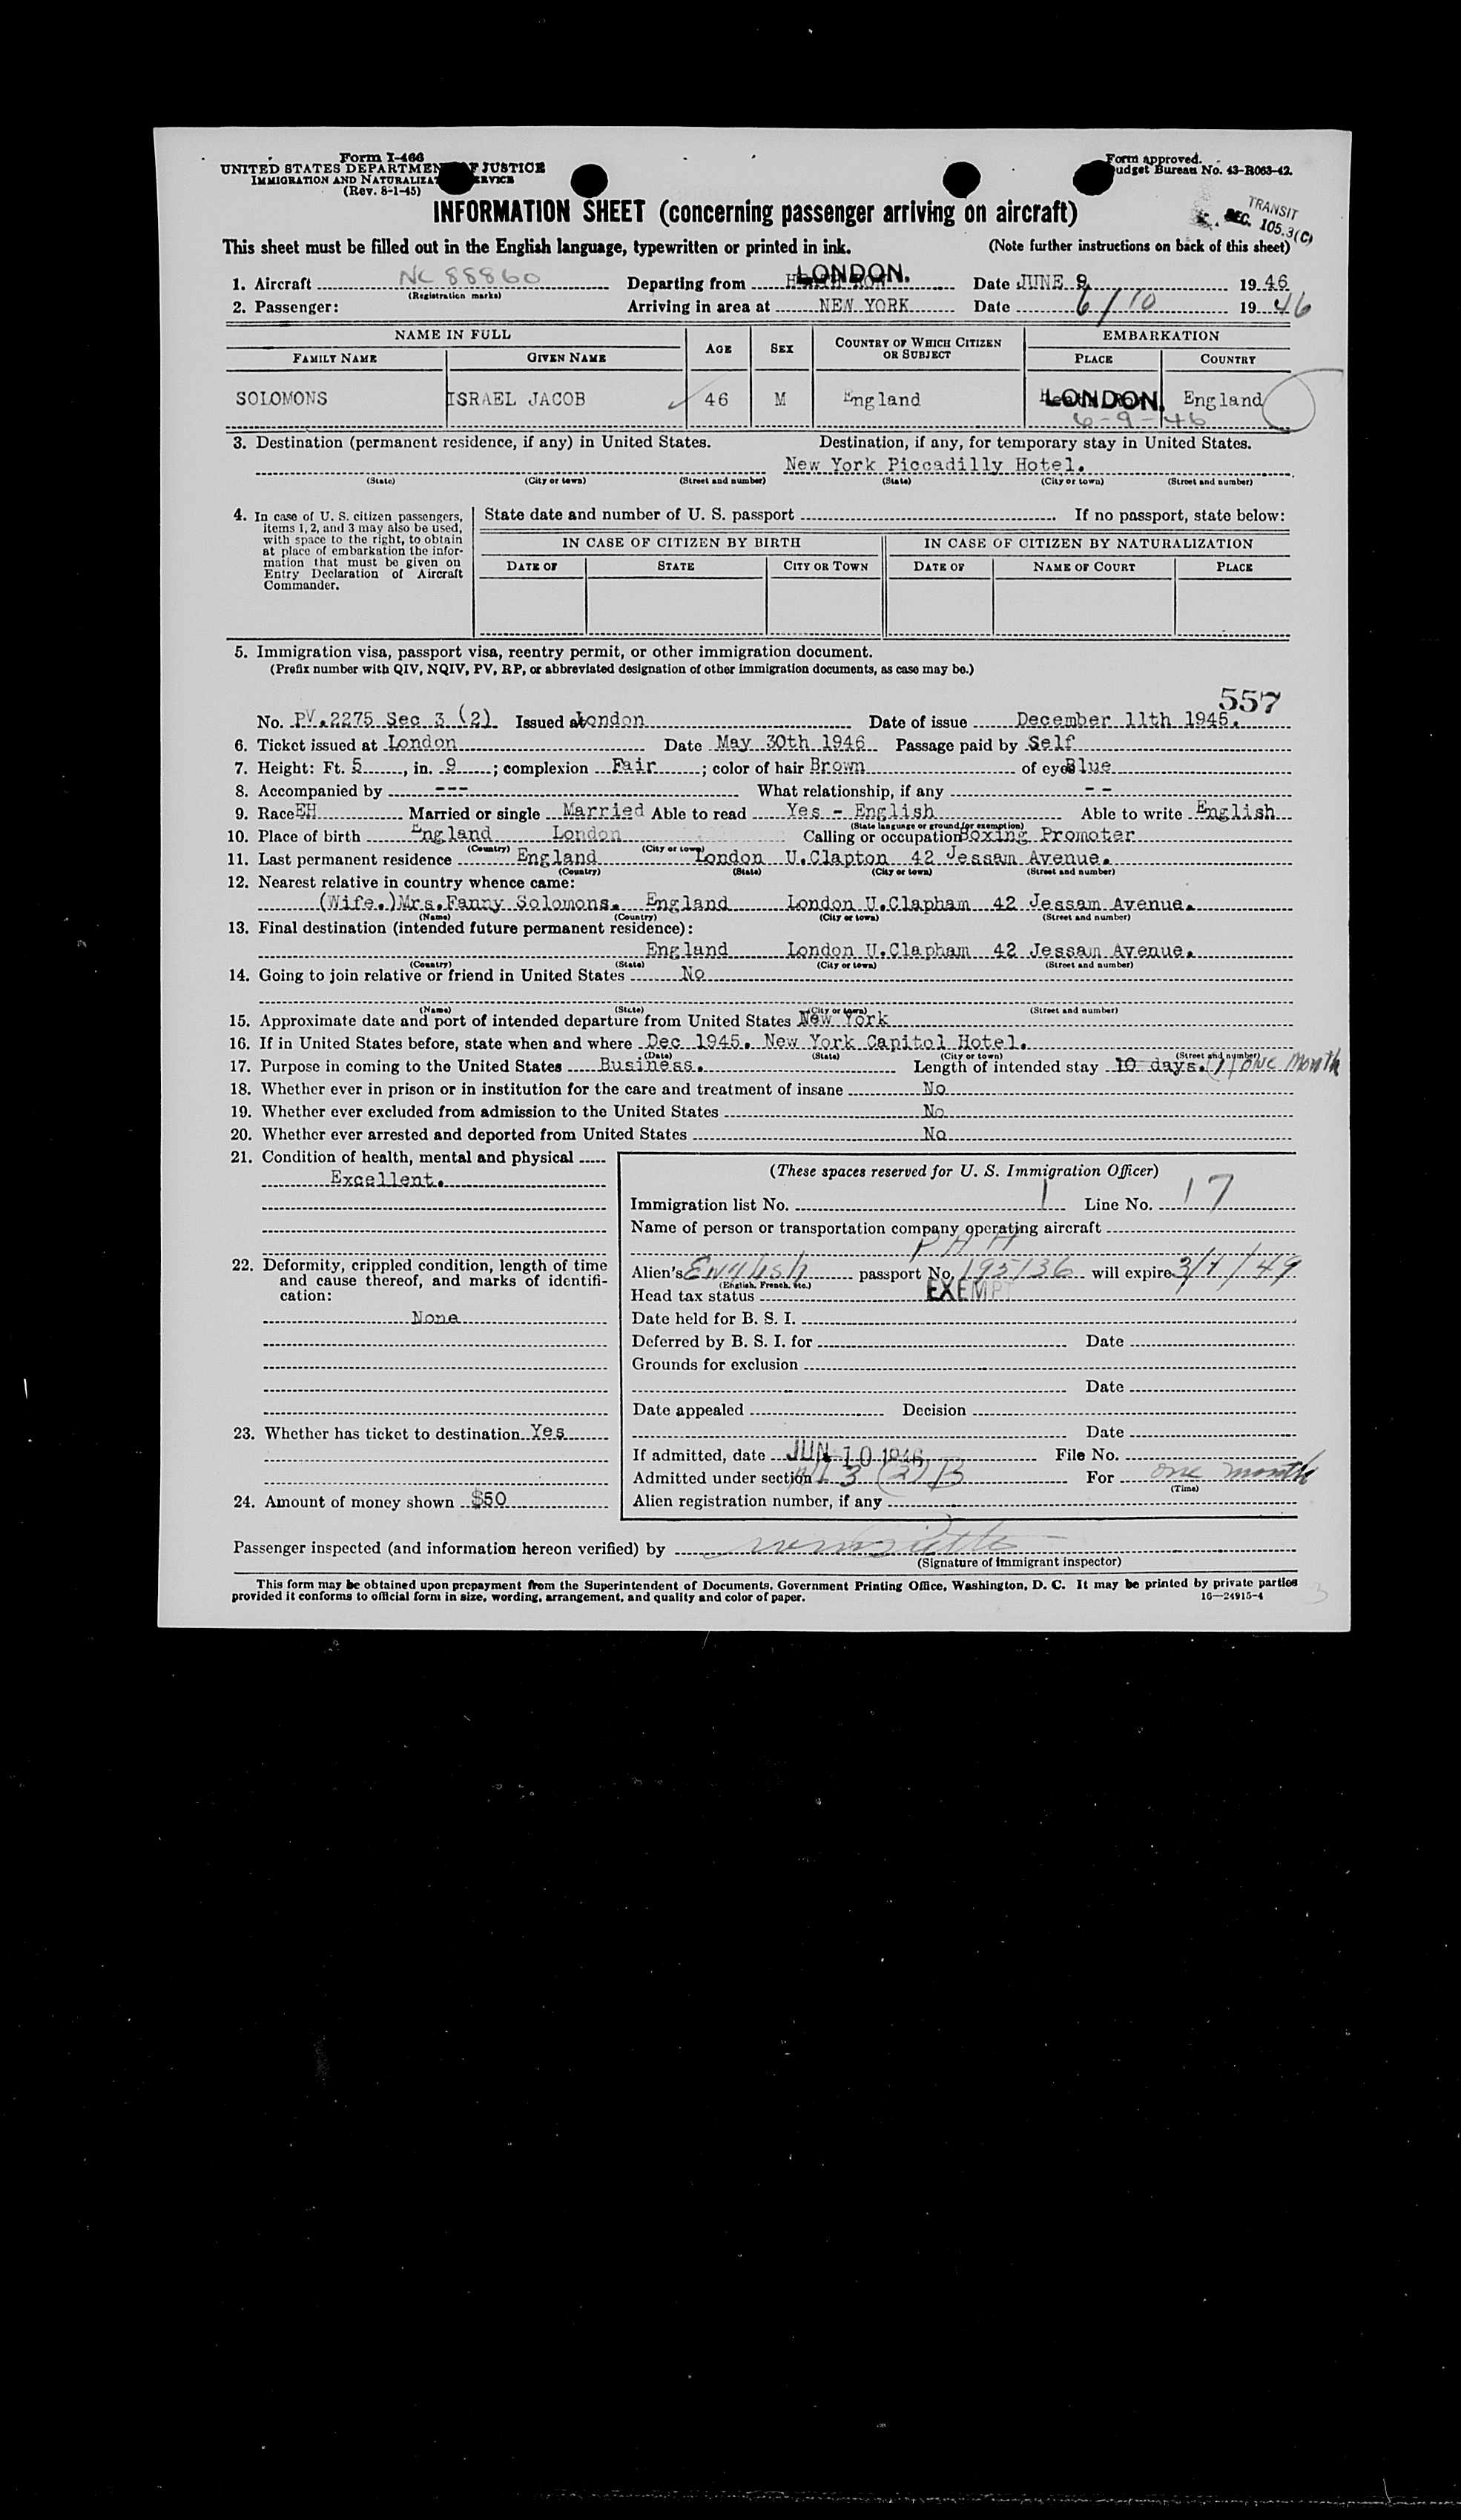 Form I-466
UNITED STATES DEPARTMENT OF JUSTICE
IMMIGRATION AND NATURALIZATION SERVICE
(Rev. 8-1-45)
Form approved.
Budget Bureau No. 43-R063-42.
TRANSIT
SEC. 105.3(C)
INFORMATION SHEET (concerning passenger arriving on aircraft)
This sheet must be filled out in the English language, typewritten or printed in ink. (Note further instructions on back of this sheet)
1. Aircraft NC 88860 Departing from LONDON. Date JUNE 9 1946
(Registration marks)
2. Passenger: Arriving in area at NEW YORK Date 6/10 1946
NAME IN FULL AGE SEX COUNTRY OF WHICH CITIZEN OR SUBJECT EMBARKATION
FAMILY NAME GIVEN NAME PLACE COUNTRY
SOLOMONS ISRAEL JACOB 46 M England LONDON. England
6-9-46
3. Destination (permanent residence, if any) in United States. Destination, if any, for temporary stay in United States.
New York Piccadilly Hotel.
(State) (City or town) (Street and number) (State) (City or town) (Street and number)
4. In case of U. S. citizen passengers, items 1, 2, and 3 may also be used, with space to the right, to obtain at place of embarkation the information that must be given on Entry Declaration of Aircraft Commander.
State date and number of U. S. passport If no passport, state below:
IN CASE OF CITIZEN BY BIRTH IN CASE OF CITIZEN BY NATURALIZATION
DATE OF STATE CITY OR TOWN DATE OF NAME OF COURT PLACE
5. Immigration visa, passport visa, reentry permit, or other immigration document.
(Prefix number with QIV, NQIV, PV, RP, or abbreviated designation of other immigration documents, as case may be.)
557
No. PV.2275 Sec 3 (2) Issued at London Date of issue December 11th 1945.
6. Ticket issued at London Date May 30th 1946 Passage paid by Self
7. Height: Ft. 5, in. 9; complexion Fair; color of hair Brown of eyes Blue
8. Accompanied by --- What relationship, if any --
9. Race EH Married or single Married Able to read Yes - English Able to write English
(State language or ground for exemption)
10. Place of birth England London Calling or occupation Boxing Promoter
(Country) (City or town)
11. Last permanent residence England London U.Clapton 42 Jessam Avenue.
(Country) (State) (City or town) (Street and number)
12. Nearest relative in country whence came:
(Wife.)Mrs.Fanny Solomons. England London U.Clapham 42 Jessam Avenue.
(Name) (Country) (City or town) (Street and number)
13. Final destination (intended future permanent residence):
England London U.Clapham 42 Jessam Avenue.
(Country) (State) (City or town) (Street and number)
14. Going to join relative or friend in United States No
(Name) (State) (City or town) (Street and number)
15. Approximate date and port of intended departure from United States New York
16. If in United States before, state when and where Dec 1945. New York Capitol Hotel.
(Date) (State) (City or town) (Street and number)
17. Purpose in coming to the United States Business. Length of intended stay 10 days. (1) one month
18. Whether ever in prison or in institution for the care and treatment of insane No
19. Whether ever excluded from admission to the United States No
20. Whether ever arrested and deported from United States No
21. Condition of health, mental and physical
Excellent.
22. Deformity, crippled condition, length of time and cause thereof, and marks of identification:
None
23. Whether has ticket to destination Yes
24. Amount of money shown $50
(These spaces reserved for U. S. Immigration Officer)
Immigration list No. 1 Line No. 17
Name of person or transportation company operating aircraft
P A A
Alien's English passport No. 195136 will expire 3/1/49
(English, French, etc.)
Head tax status EXEMPT
Date held for B. S. I.
Deferred by B. S. I. for Date
Grounds for exclusion
Date
Date appealed Decision
Date
If admitted, date JUN 10 1946 File No.
Admitted under section 3 (2) B For one month
(Time)
Alien registration number, if any
Passenger inspected (and information hereon verified) by
(Signature of immigrant inspector)
This form may be obtained upon prepayment from the Superintendent of Documents, Government Printing Office, Washington, D. C. It may be printed by private parties
provided it conforms to official form in size, wording, arrangement, and quality and color of paper. 16—24915-4